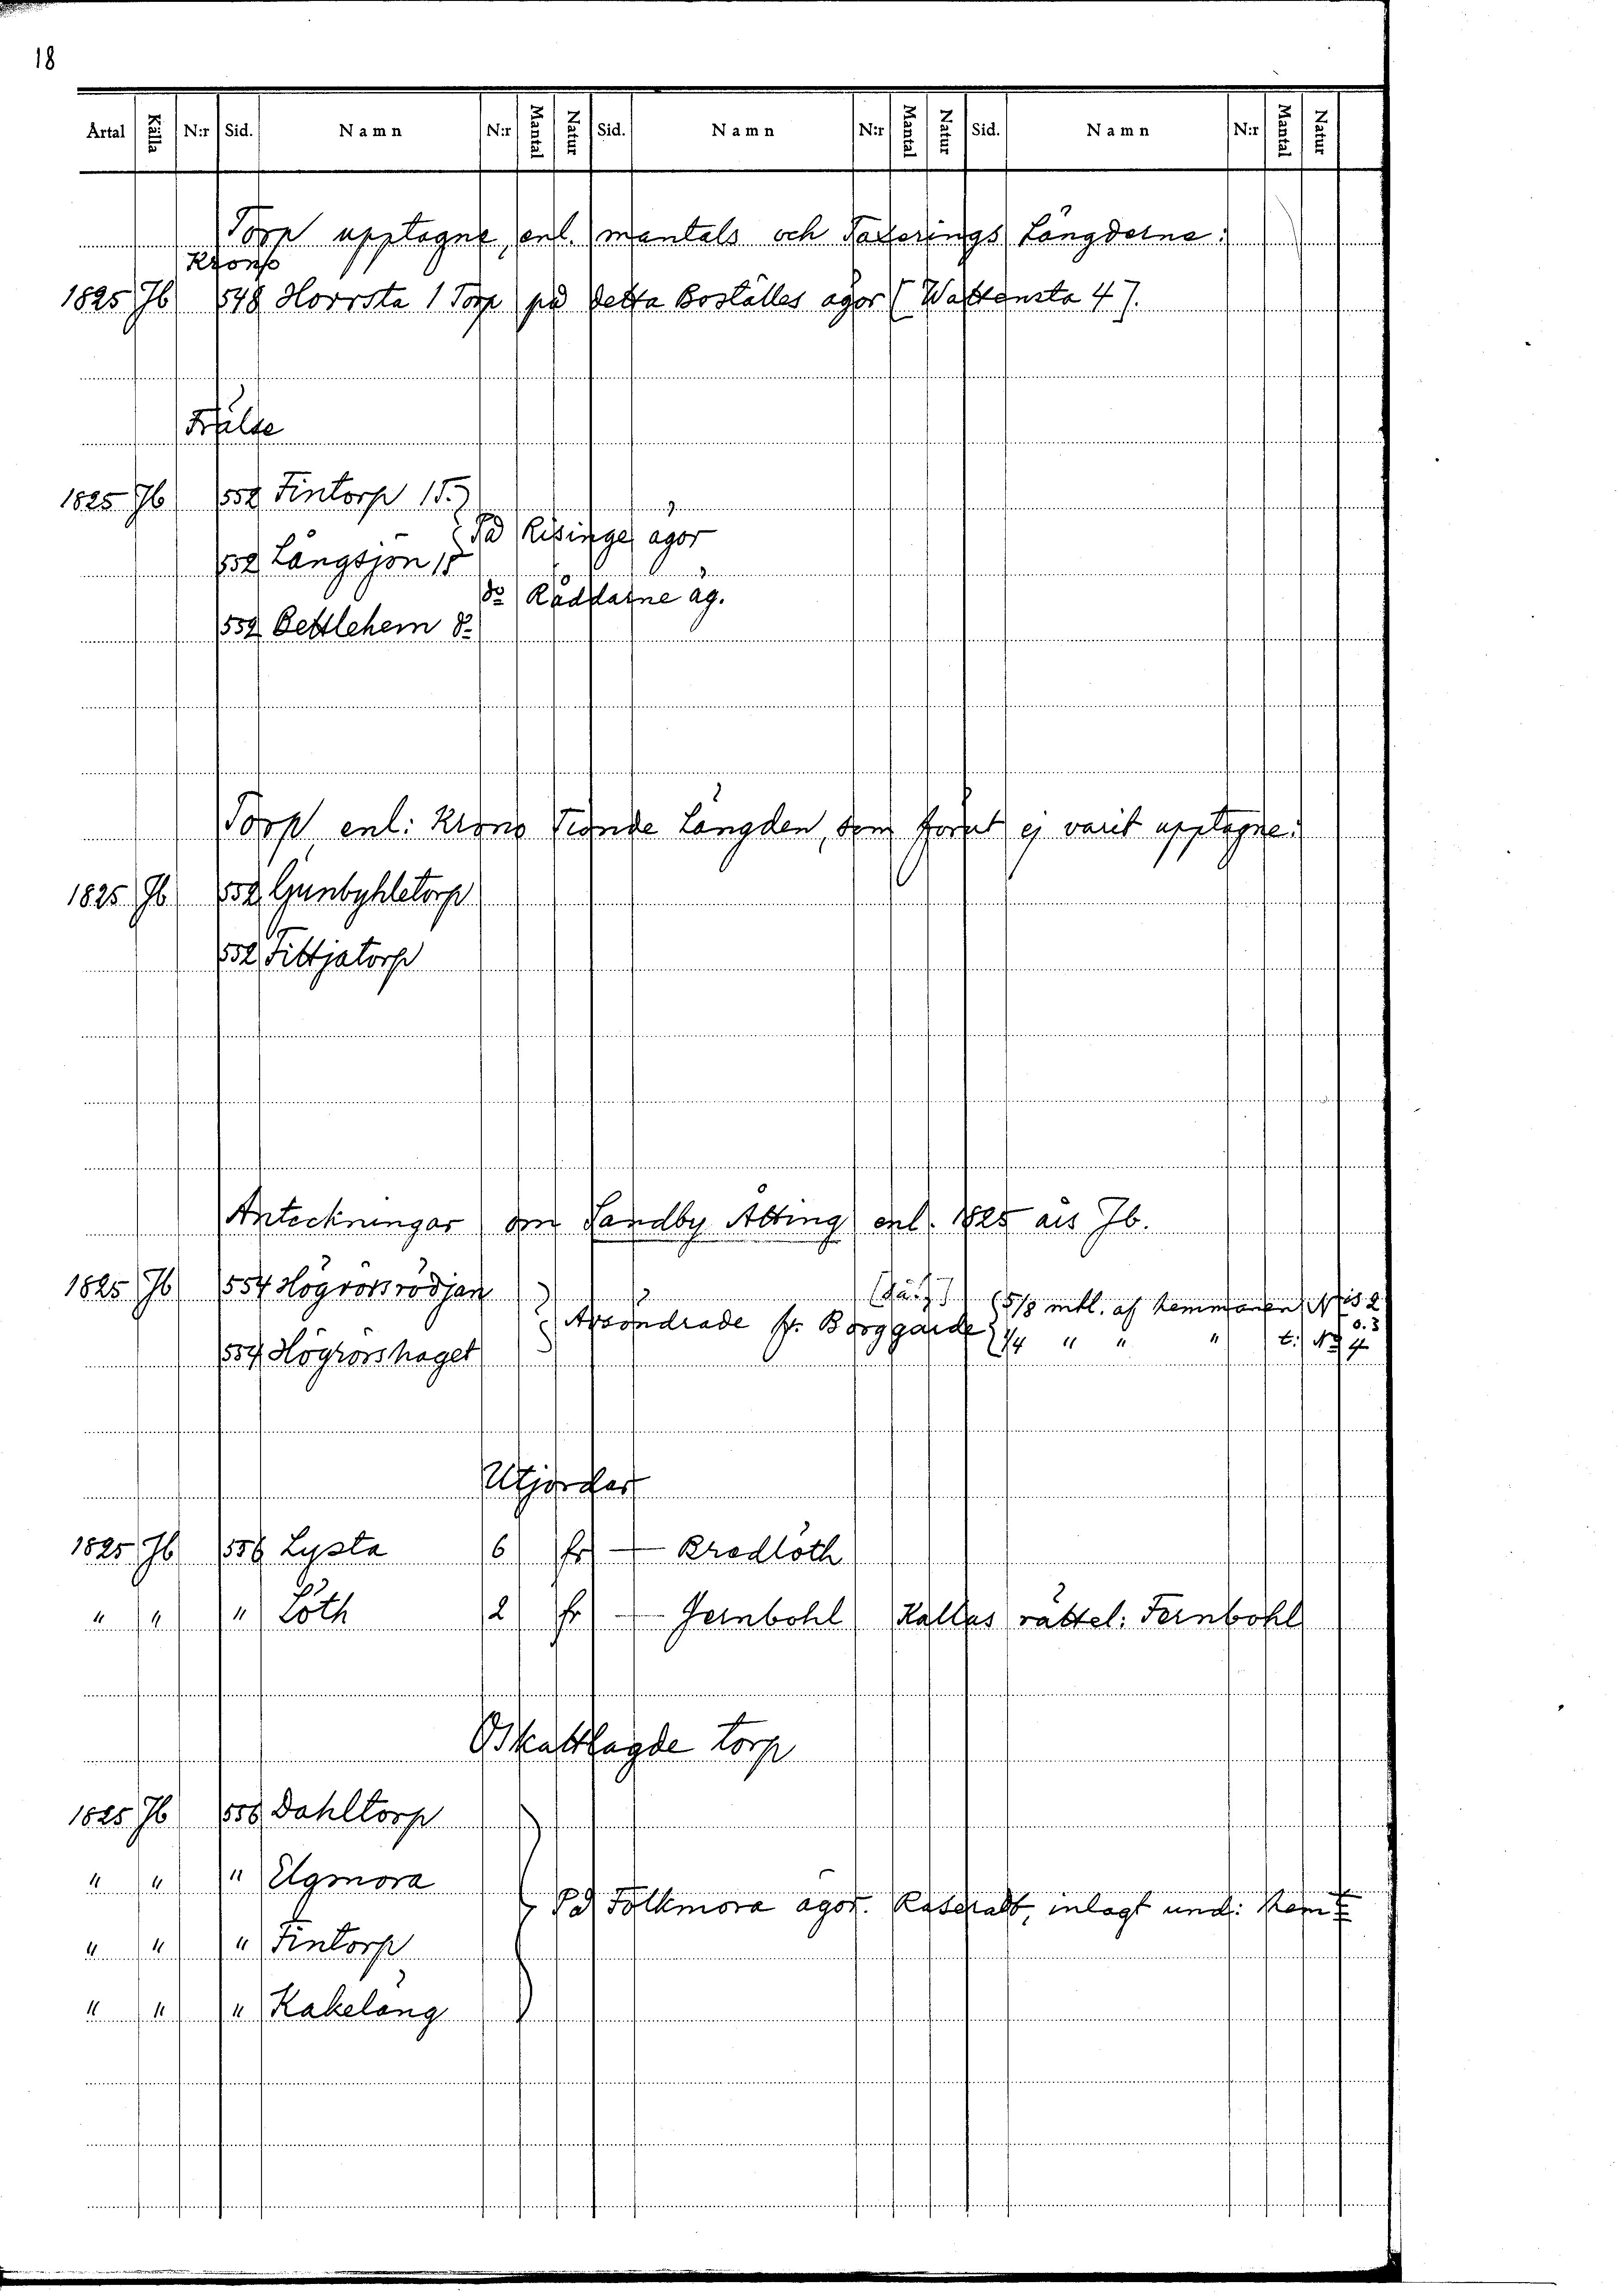 18
Artal Källa N:r Sid. Namn N:r Mantal Natur Sid. Namn N:r Mantal Natur Sid. Namn N:r Mantal Natur
Torp upptagne, enl. mantals och Taxerings Längderne:
Krono
1825 Jb 548 Horrsta 1 Torp på detta Boställes ägor [Wattensta 4].
Frälse
1825 Jb 552 Fintorp 1T.
På Risinge ägor
552 Långsjön 1T
do Räddarne äg.
552 Bettlehem do
Torp enl: Krono Tionde Längden, som förut ej varit upptagne:
1825 Jb 552 Gunbyhletorp
552 Fittjatorp
Anteckningar om Sandby Åtting enl. 1825 års Jb.
1825 Jb 554 Högrörsrödjan
5/8 mtl. af hemmanen N:is 2 o. 3
Afsöndrade fr. Borggärde
1/4 " " " t. No 4
554 Högrörshaget
Utjordar
1825 Jb 556 Lysta 6 fr — Bredlöth
" " " Löth 2 fr — Jernbohl Kallas rättel: Fernbohl
Oskattlagde torp
1825 Jb 556 Dahltorp
" " " Elgmora
På Folkmora ägor. inlagt und: hem
" " " Fintorp
" " " Kakeläng